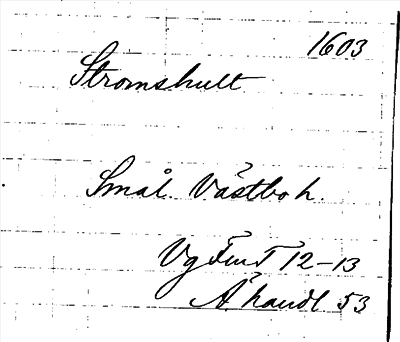 1603
Stromshult
Smål. Västbo h.
Vg FmT 12-13
Ä handl 53